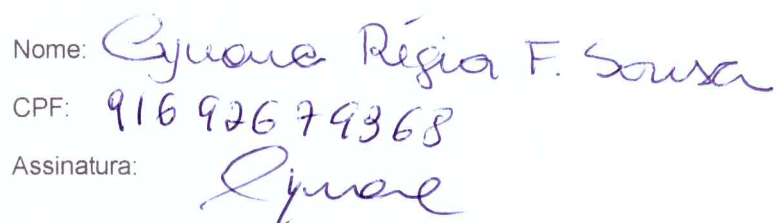 Nome: Cynara Régia F. Sousa
CPF: 91692679368
Assinatura: Cynara